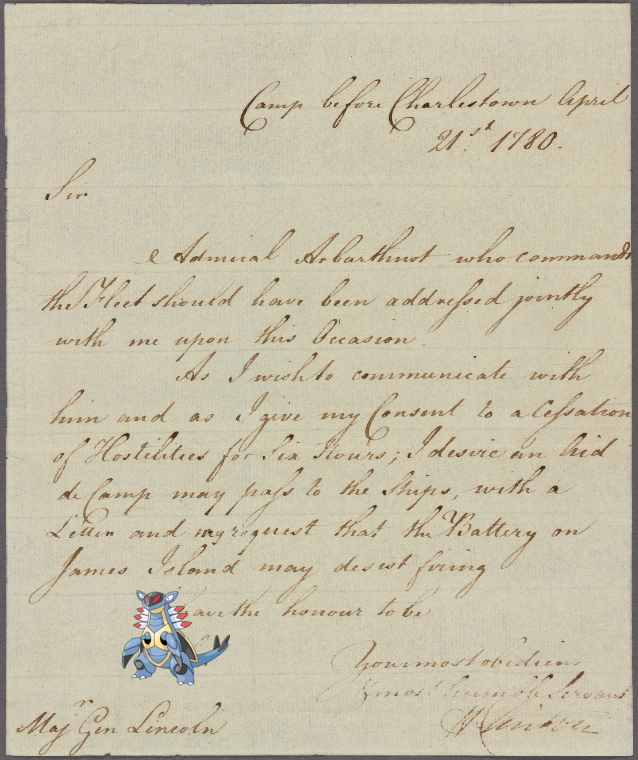 Camp before Charlestown April
21st 1780.
Sir
Admiral Arbuthnot who commands
the Fleet should have been addressed jointly
with me upon this Occasion.
As I wish to communicate with
him and as I give my Consent to a Cessation
of Hostilities for Six Hours; I desire an Aid
de Camp may pass to the Ships, with a
Letter and my request that the Battery on
James Island may desist firing
have the honour to be
Your most obedient
& most humble Servant
H Clinton
Majr Gen Lincoln